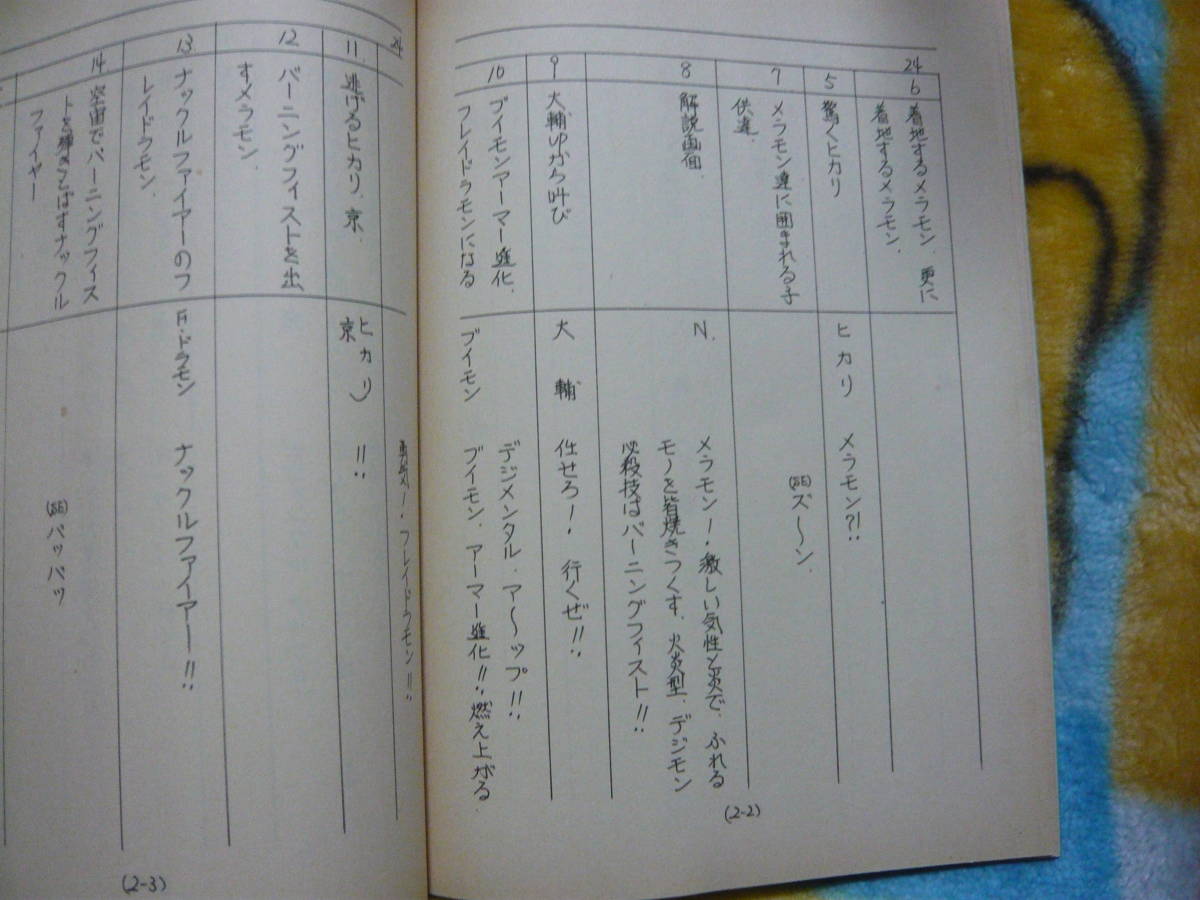 24
6
着地するメラモン、更に
着地するメラモン、
5
驚くヒカリ
ヒカリ メラモン?!
7
メラモン達に囲まれる子
供達
(SE)ズ〜ン、
8
解説画面
N.
メラモン!激しい気性と炎で、ふれる
モノを皆焼きつくす、火炎型、デジモン
必殺技はバーニングフィスト!!
9
大輔ゆから叫び
大輔 任せろ! 行くぜ!!
10
ブイモンアーマー進化、
フレイドラモンになる
ブイモン
デジメンタル、ア〜ップ!!
ブイモン、アーマー進化!!燃え上がる
(2-2)
24
勇気!フレイドラモン!!
11
逃げるヒカリ、京、
ヒカリ
京
!!
12
バーニングフィストを出
すメラモン、
13
ナックルファイアーのフ
レイドラモン、
F・ドラモン ナックルファイアー!!
14
空宙でバーニングフィス
トを弾きとばすナックル
ファイヤー
(SE)バッバッ
(2-3)